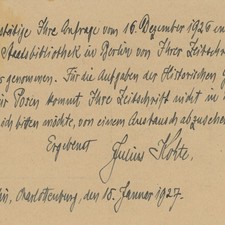 stätige Ihre Anfrage vom 16. Dezember 1926 in
Staatsbibliothek in Berlin von Ihrer Zeitschr
s genommen. Für die Aufgaben der Historischen G
ür Posen kommt Ihre Zeitschrift nicht in
ich bitten möchte, von einem Austausch abzusehe
Ergebenst
Julius Kohte.
Charlottenburg, den 18. Januar 1927.